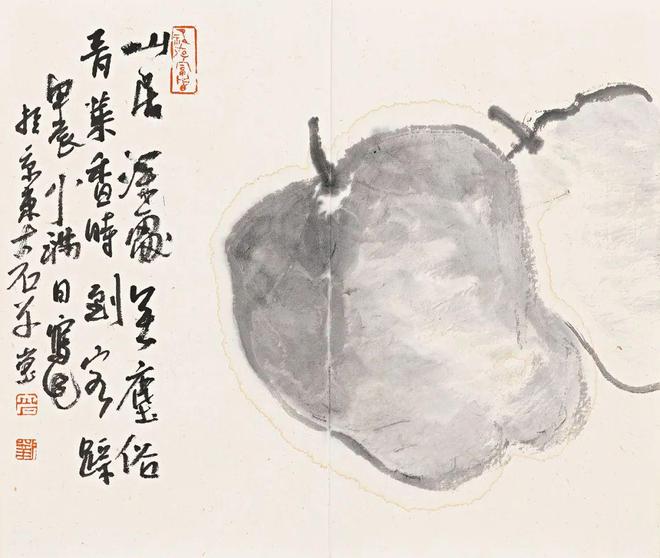 山居深處無塵俗
青葉香時到客蹤
甲辰小滿日寫
於京東大石草堂